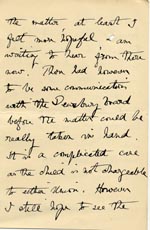 the matter at least I
feel more hopeful I am
waiting to hear from them
now. There had however
to be some communication
with the Dewsbury Board
before the matter could be
really taken in hand.
It is a complicated case
as the child is not chargeable
to either Union. However
I still hope to see the